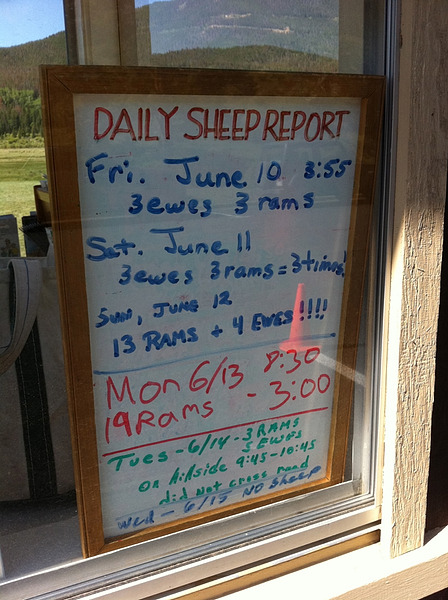 DAILY SHEEP REPORT
Fri. June 10 3:55
3 ewes 3 rams
Sat. June 11
3 ewes 3 rams = 3 times!
Sun, June 12
13 RAMS + 4 EWES !!!!
Mon 6/13 8:30
19 Rams - 3:00
Tues - 6/14 - 3 RAMS
5 EWES
on hillside 9:45-10:45
did not cross road
Wed - 6/15 NO Sheep